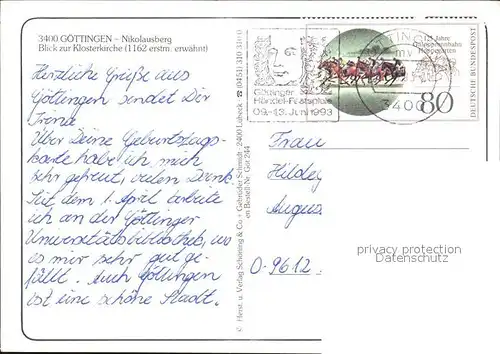 3400 GÖTTINGEN – Nikolausberg
Blick zur Klosterkirche (1162 erstm. erwähnt)
Herzliche Grüße aus
Göttingen sendet Dir
Irena
Über Deine Geburtstags-
karte habe ich mich
sehr gefreut, vielen Dank!
Seit dem 1. April arbeite
ich an der Göttinger
Universitätsbibliothek, wo
es mir sehr gut ge-
fällt. Auch Göttingen
ist eine schöne Stadt.
© Herst. u. Verlag Schöning & Co. + Gebrüder Schmidt · 2400 Lübeck · ☎ (0451) 310 31 0
Best-Nr. Göt 244
Göttinger
Händel-Festspiele
09.-13. Juni 1993
3400
125 Jahre
Galopprennbahn
Hoppegarten
80
DEUTSCHE BUNDESPOST
Frau
Hildeg
Augus
O-9612
privacy protection
Datenschutz